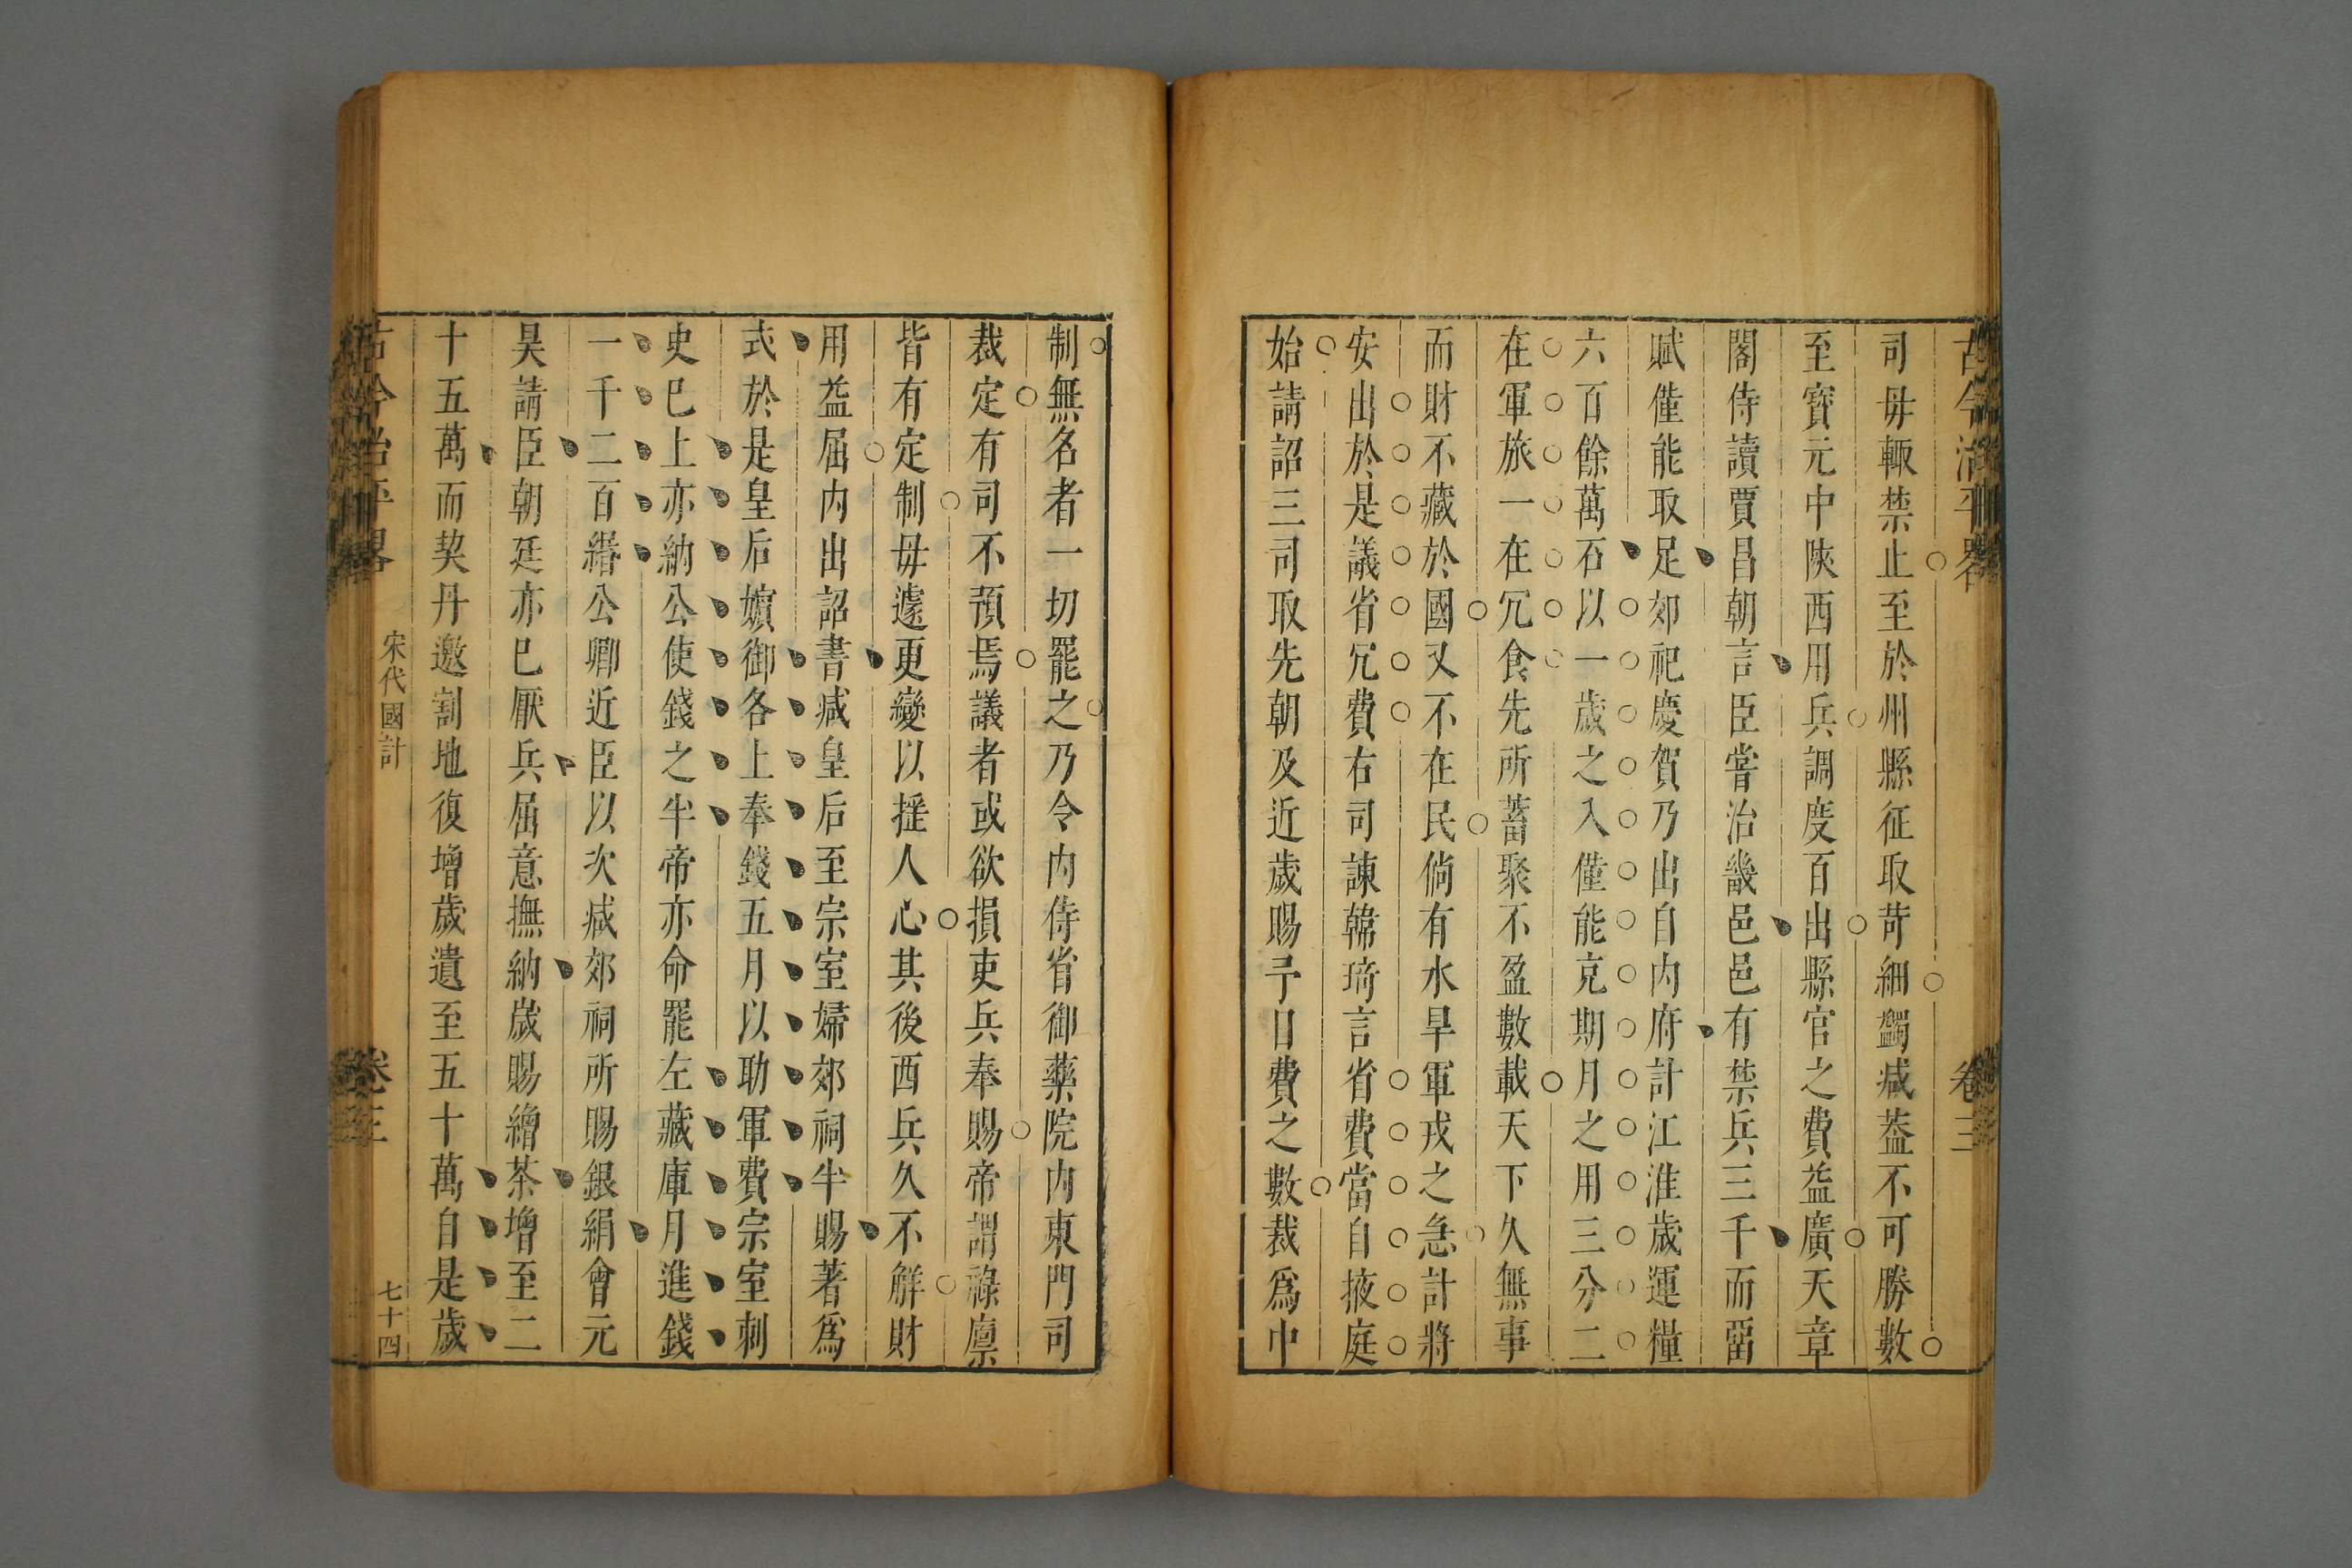 古今治平畧
卷三
司毋輙禁止至於州縣征取苛細蠲减葢不可勝數
至寶元中陝西用兵調度百出縣官之費益廣天章
閣侍讀賈昌朝言臣嘗治畿邑邑有禁兵三千而畱
賦僅能取足郊祀慶賀乃出自内府計江淮歲運糧
六百餘萬石以一歲之入僅能克期月之用三分二
在軍旅一在冗食先所蓄聚不盈數載天下久無事
而財不藏於國又不在民倘有水旱軍戎之急計將
安出於是議省冗費右司諫韓琦言省費當自掖庭
始請詔三司取先朝及近歲賜予日費之數裁爲中
制無名者一切罷之乃令内侍省御藥院内東門司
裁定有司不預焉議者或欲損吏兵奉賜帝謂祿廪
皆有定制毋遽更變以摇人心其後西兵久不解財
用益屈内出詔書减皇后至宗室婦郊祠半賜著爲
式於是皇后嬪御各上奉錢五月以助軍費宗室刺
史已上亦納公使錢之半帝亦命罷左藏庫月進錢
一千二百緡公卿近臣以次减郊祠所賜銀絹會元
昊請臣朝廷亦已厭兵屈意撫納歲賜繒茶增至二
十五萬而契丹邀割地復增歲遺至五十萬自是歲
古今治平畧
宋代國計
卷三
七十四